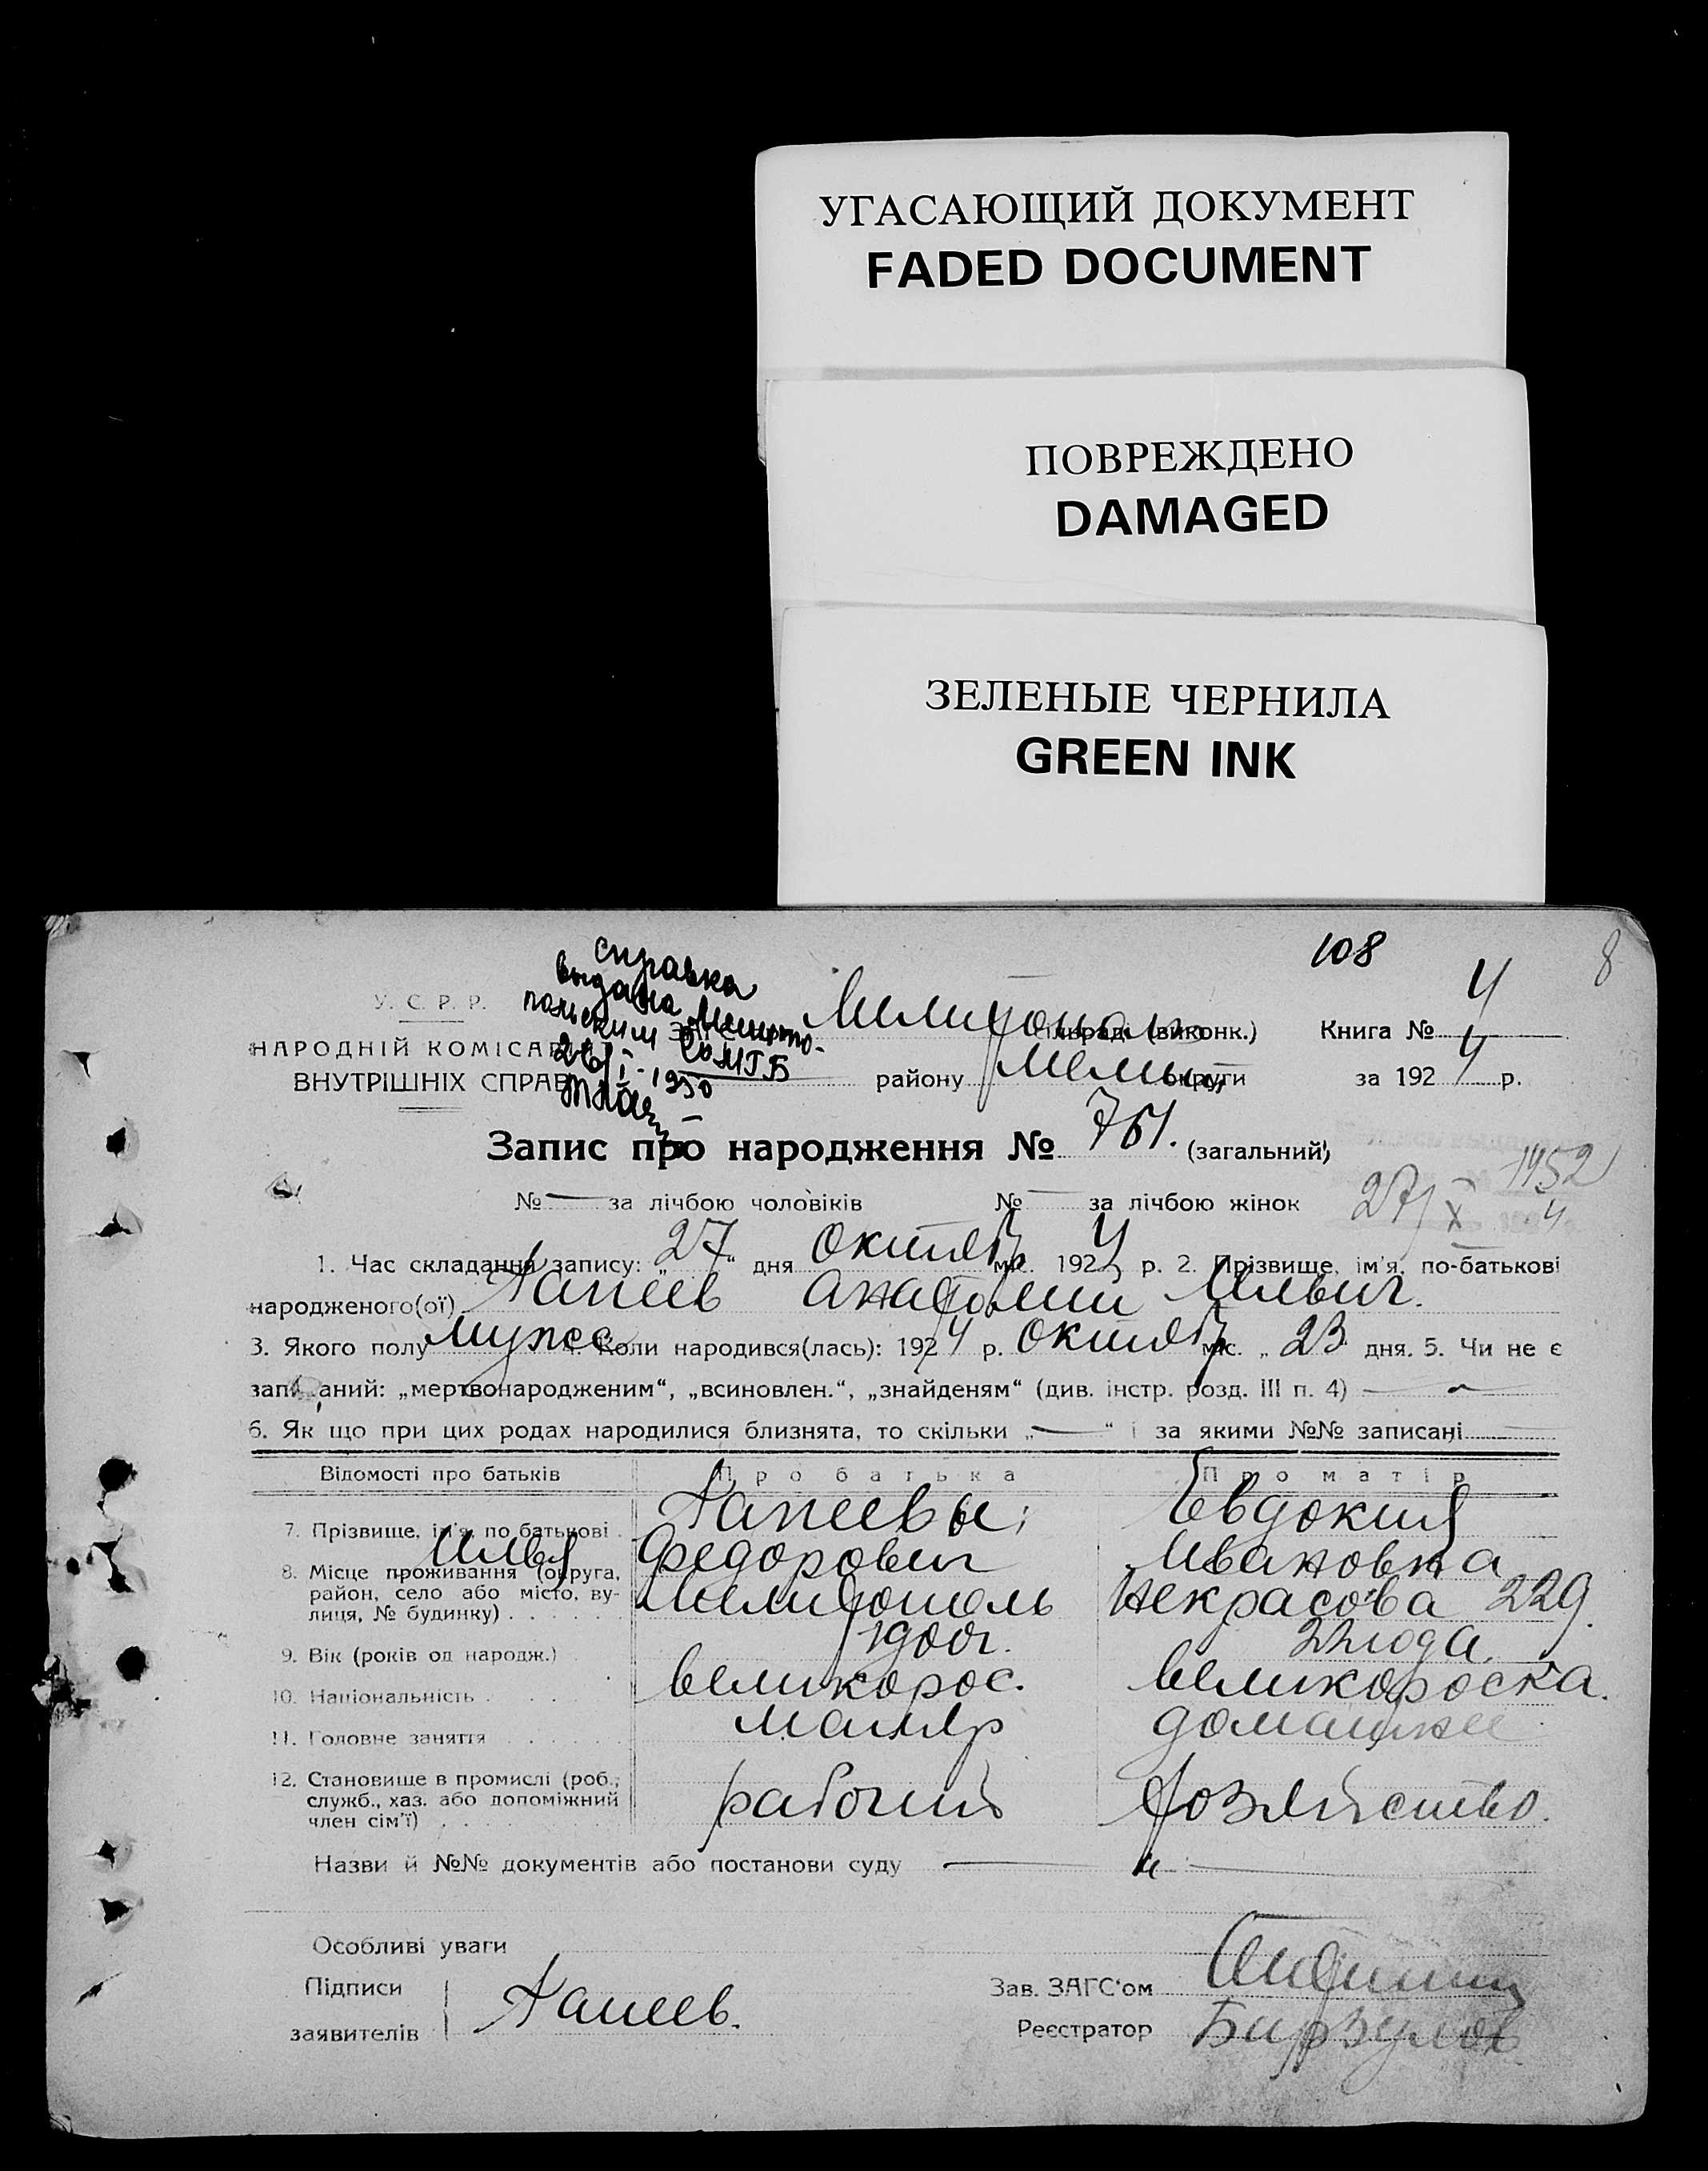 УГАСАЮЩИЙ ДОКУМЕНТ
FADED DOCUMENT
ПОВРЕЖДЕНО
DAMAGED
ЗЕЛЕНЫЕ ЧЕРНИЛА
GREEN INK
108
8
справка
выдана Мелито-
польским
26/I-1950
У. С. Р. Р.
НАРОДНІЙ КОМІСАР
ВНУТРІШНІХ СПРАВ
Мелитополь сільраді (виконк.) Книга № 4
району Мелит округи за 1924 р.
Запис про народження № 751. (загальний)
№ — за лічбою чоловіків № — за лічбою жінок
27/X 1952
1. Час складання запису: „27“ дня октябр міс. 1924 р. 2. Прізвище, ім'я, по-батькові
народженого(ої) Капеев Анатолий Ильич.
3. Якого полу мужс 4. Коли народився(лась): 1924 р. октябр міс. „23 дня. 5. Чи не є
записаний: „мертвонародженим“, „всиновлен.“, „знайденям“ (див. інстр. розд. III п. 4) —
6. Як що при цих родах народилися близнята, то скільки „—“ і за якими №№ записані
Відомості про батьків Про батька Про матір
7. Прізвище, ім'я, по батькові Капеевы; Евдокия
Илья Федорович Ивановна
8. Місце проживання (округа, район, село або місто, ву-
лиця, № будинку) Мелитополь Некрасова 229.
9. Вік (років од народж.) 1900г. 22 года.
10. Національність великорос. великороска.
11. Головне заняття маляр домашнее
12. Становище в промислі (роб.,
служб., хаз. або допоміжний
член сім'ї) рабочий хозяйство.
Назви й №№ документів або постанови суду —
Особливі уваги
Підписи
заявителів Капеев.
Зав. ЗАГС'ом
Реєстратор